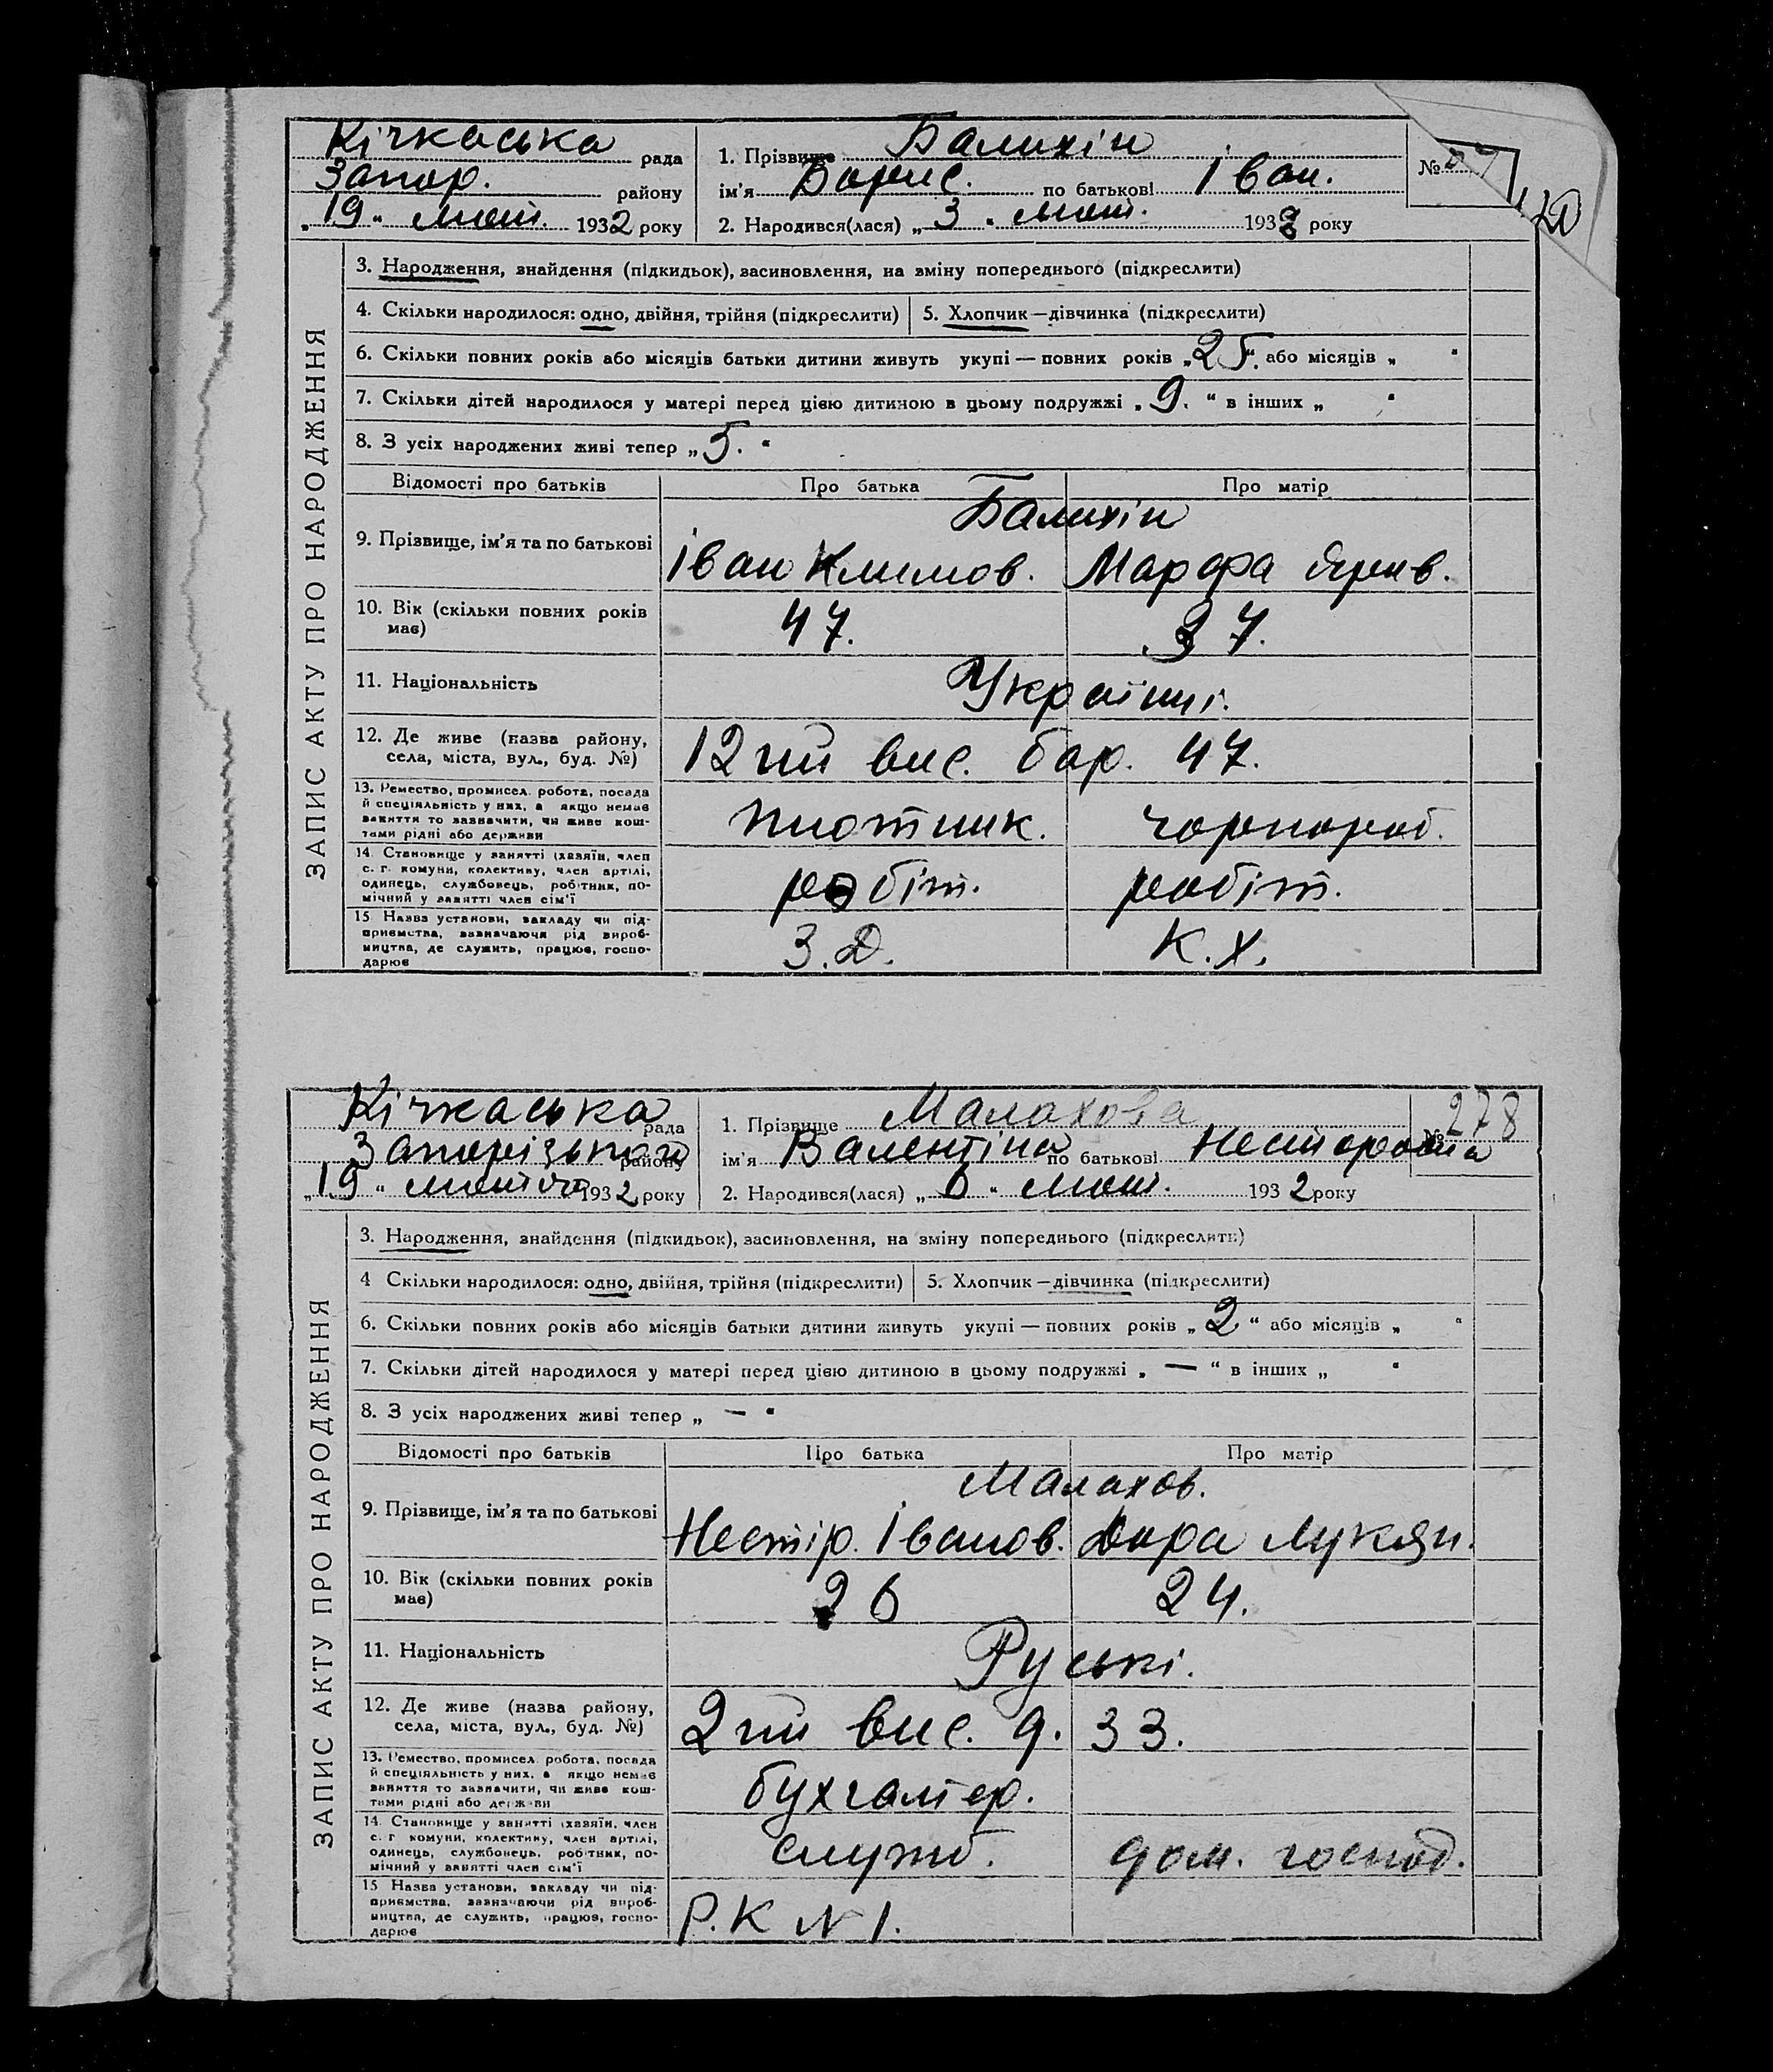 Кічкаська рада
Запор. району
„19“ лют. 1932 року
1. Прізвище Балихін
ім'я Борис. по батькові Іван.
2. Народився(лася) „3“ лют. 1932 року
№
ЗАПИС АКТУ ПРО НАРОДЖЕННЯ
3. Народження, знайдення (підкидьок), засиновлення, на зміну попереднього (підкреслити)
4. Скільки народилося: одно, двійня, трійня (підкреслити) 5. Хлопчик—дівчинка (підкреслити)
6. Скільки повних років або місяців батьки дитини живуть укупі — повних років „25.“ або місяців „ “
7. Скільки дітей народилося у матері перед цією дитиною в цьому подружжі „9.“ в інших „ “
8. З усіх народжених живі тепер „5.“
Відомості про батьків Про батька Про матір
Балихін
9. Прізвище, ім'я та по батькові Іван Климов. Марфа
10. Вік (скільки повних років має) 47. 37.
11. Національність Українці.
12. Де живе (назва району, села, міста, вул., буд. №) 12тий вис. бар. 47.
13. Ремество, промисел. робота, посада й спеціяльність у них, а якщо немає заняття то зазначити, чи живе коштами рідні або держави плотник. чорнороб.
14. Становище у занятті (хазяїн, член с. г. комуни, колективу, член артілі, одинець, службовець, робітник, помічний у занятті член сім'ї робіт. робіт.
15. Назва установи, закладу чи підприємства, зазначаючи рід виробництва, де служить, працює, господарює З.Д. К.Х.
Кічкаська рада
Запорізького району
„19“ лютого 1932 року
1. Прізвище Малахова
ім'я Валентіна по батькові Несторовна
2. Народився(лася) „6“ лют. 1932 року
№ 278
ЗАПИС АКТУ ПРО НАРОДЖЕННЯ
3. Народження, знайдення (підкидьок), засиновлення, на зміну попереднього (підкреслити)
4 Скільки народилося: одно, двійня, трійня (підкреслити) 5. Хлопчик—дівчинка (підкреслити)
6. Скільки повних років або місяців батьки дитини живуть укупі — повних років „2“ або місяців „ “
7. Скільки дітей народилося у матері перед цією дитиною в цьому подружжі „—“ в інших „ “
8. З усіх народжених живі тепер „—“
Відомості про батьків Про батька Про матір
Малахов.
9. Прізвище, ім'я та по батькові Нестір. Іванов. Дора Лукян.
10. Вік (скільки повних років має) 26 24.
11. Національність Руські.
12. Де живе (назва району, села, міста, вул., буд. №) 2гий вис. д. 33.
13. Ремество, промисел. робота, посада й спеціяльність у них, а якщо немає заняття то зазначити, чи живе коштами рідні або держави бухгалтер.
14. Становище у занятті (хазяїн, член с. г. комуни, колективу, член артілі, одинець, службовець, робітник, помічний у занятті член сім'ї служб. дом. господ.
15 Назва установи, закладу чи підприємства, зазначаючи рід виробництва, де служить, працює, господарює Р.К №1.